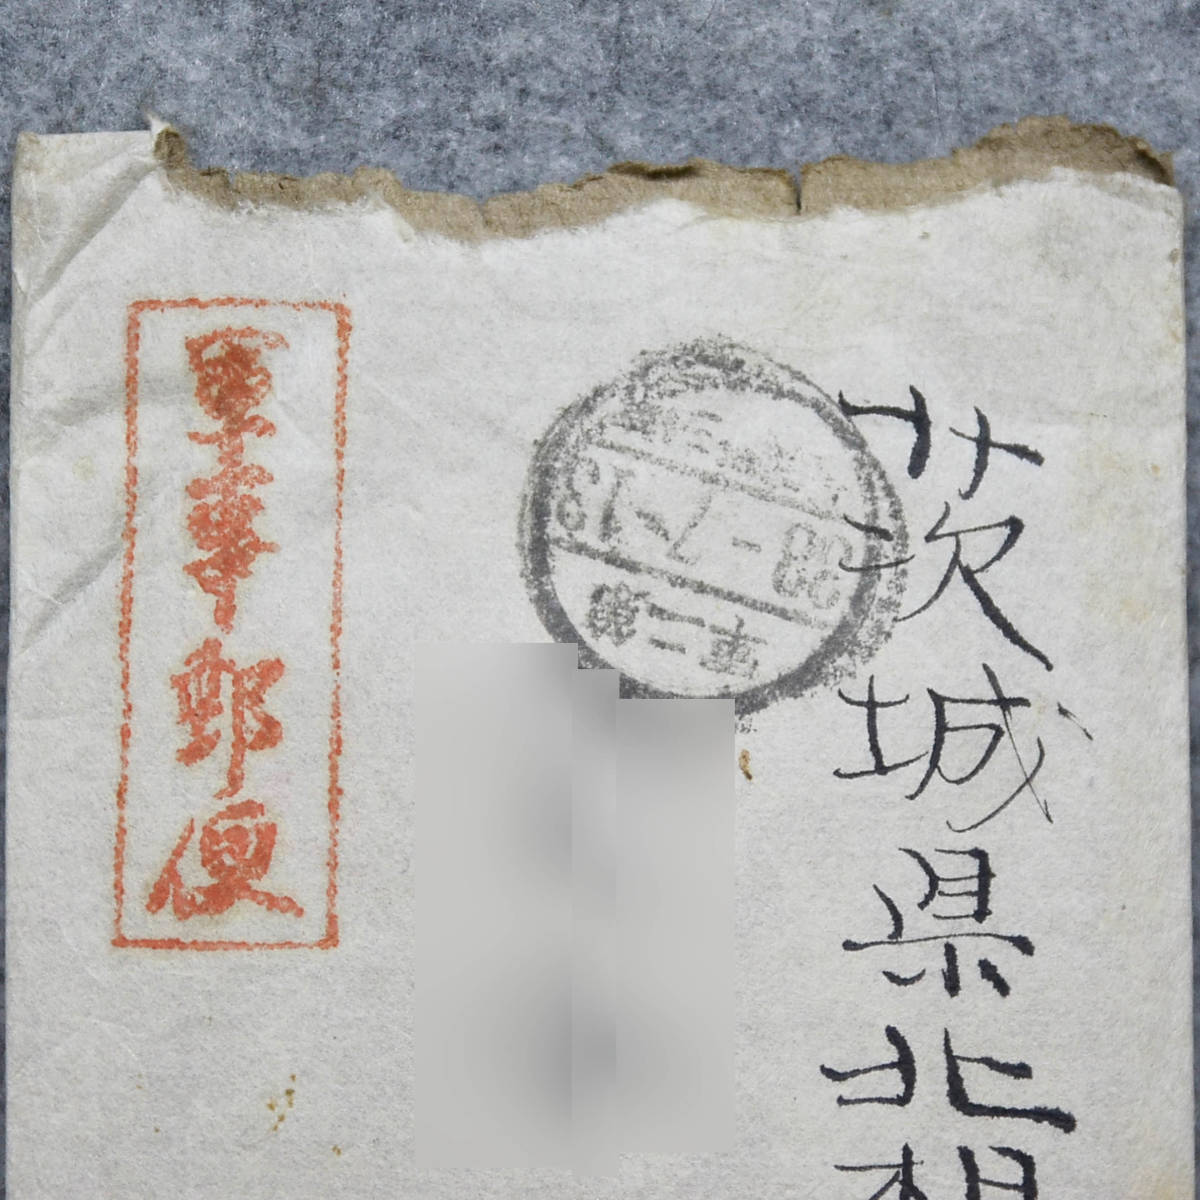 茨城県北相
38-7-18
第二軍
軍事郵便